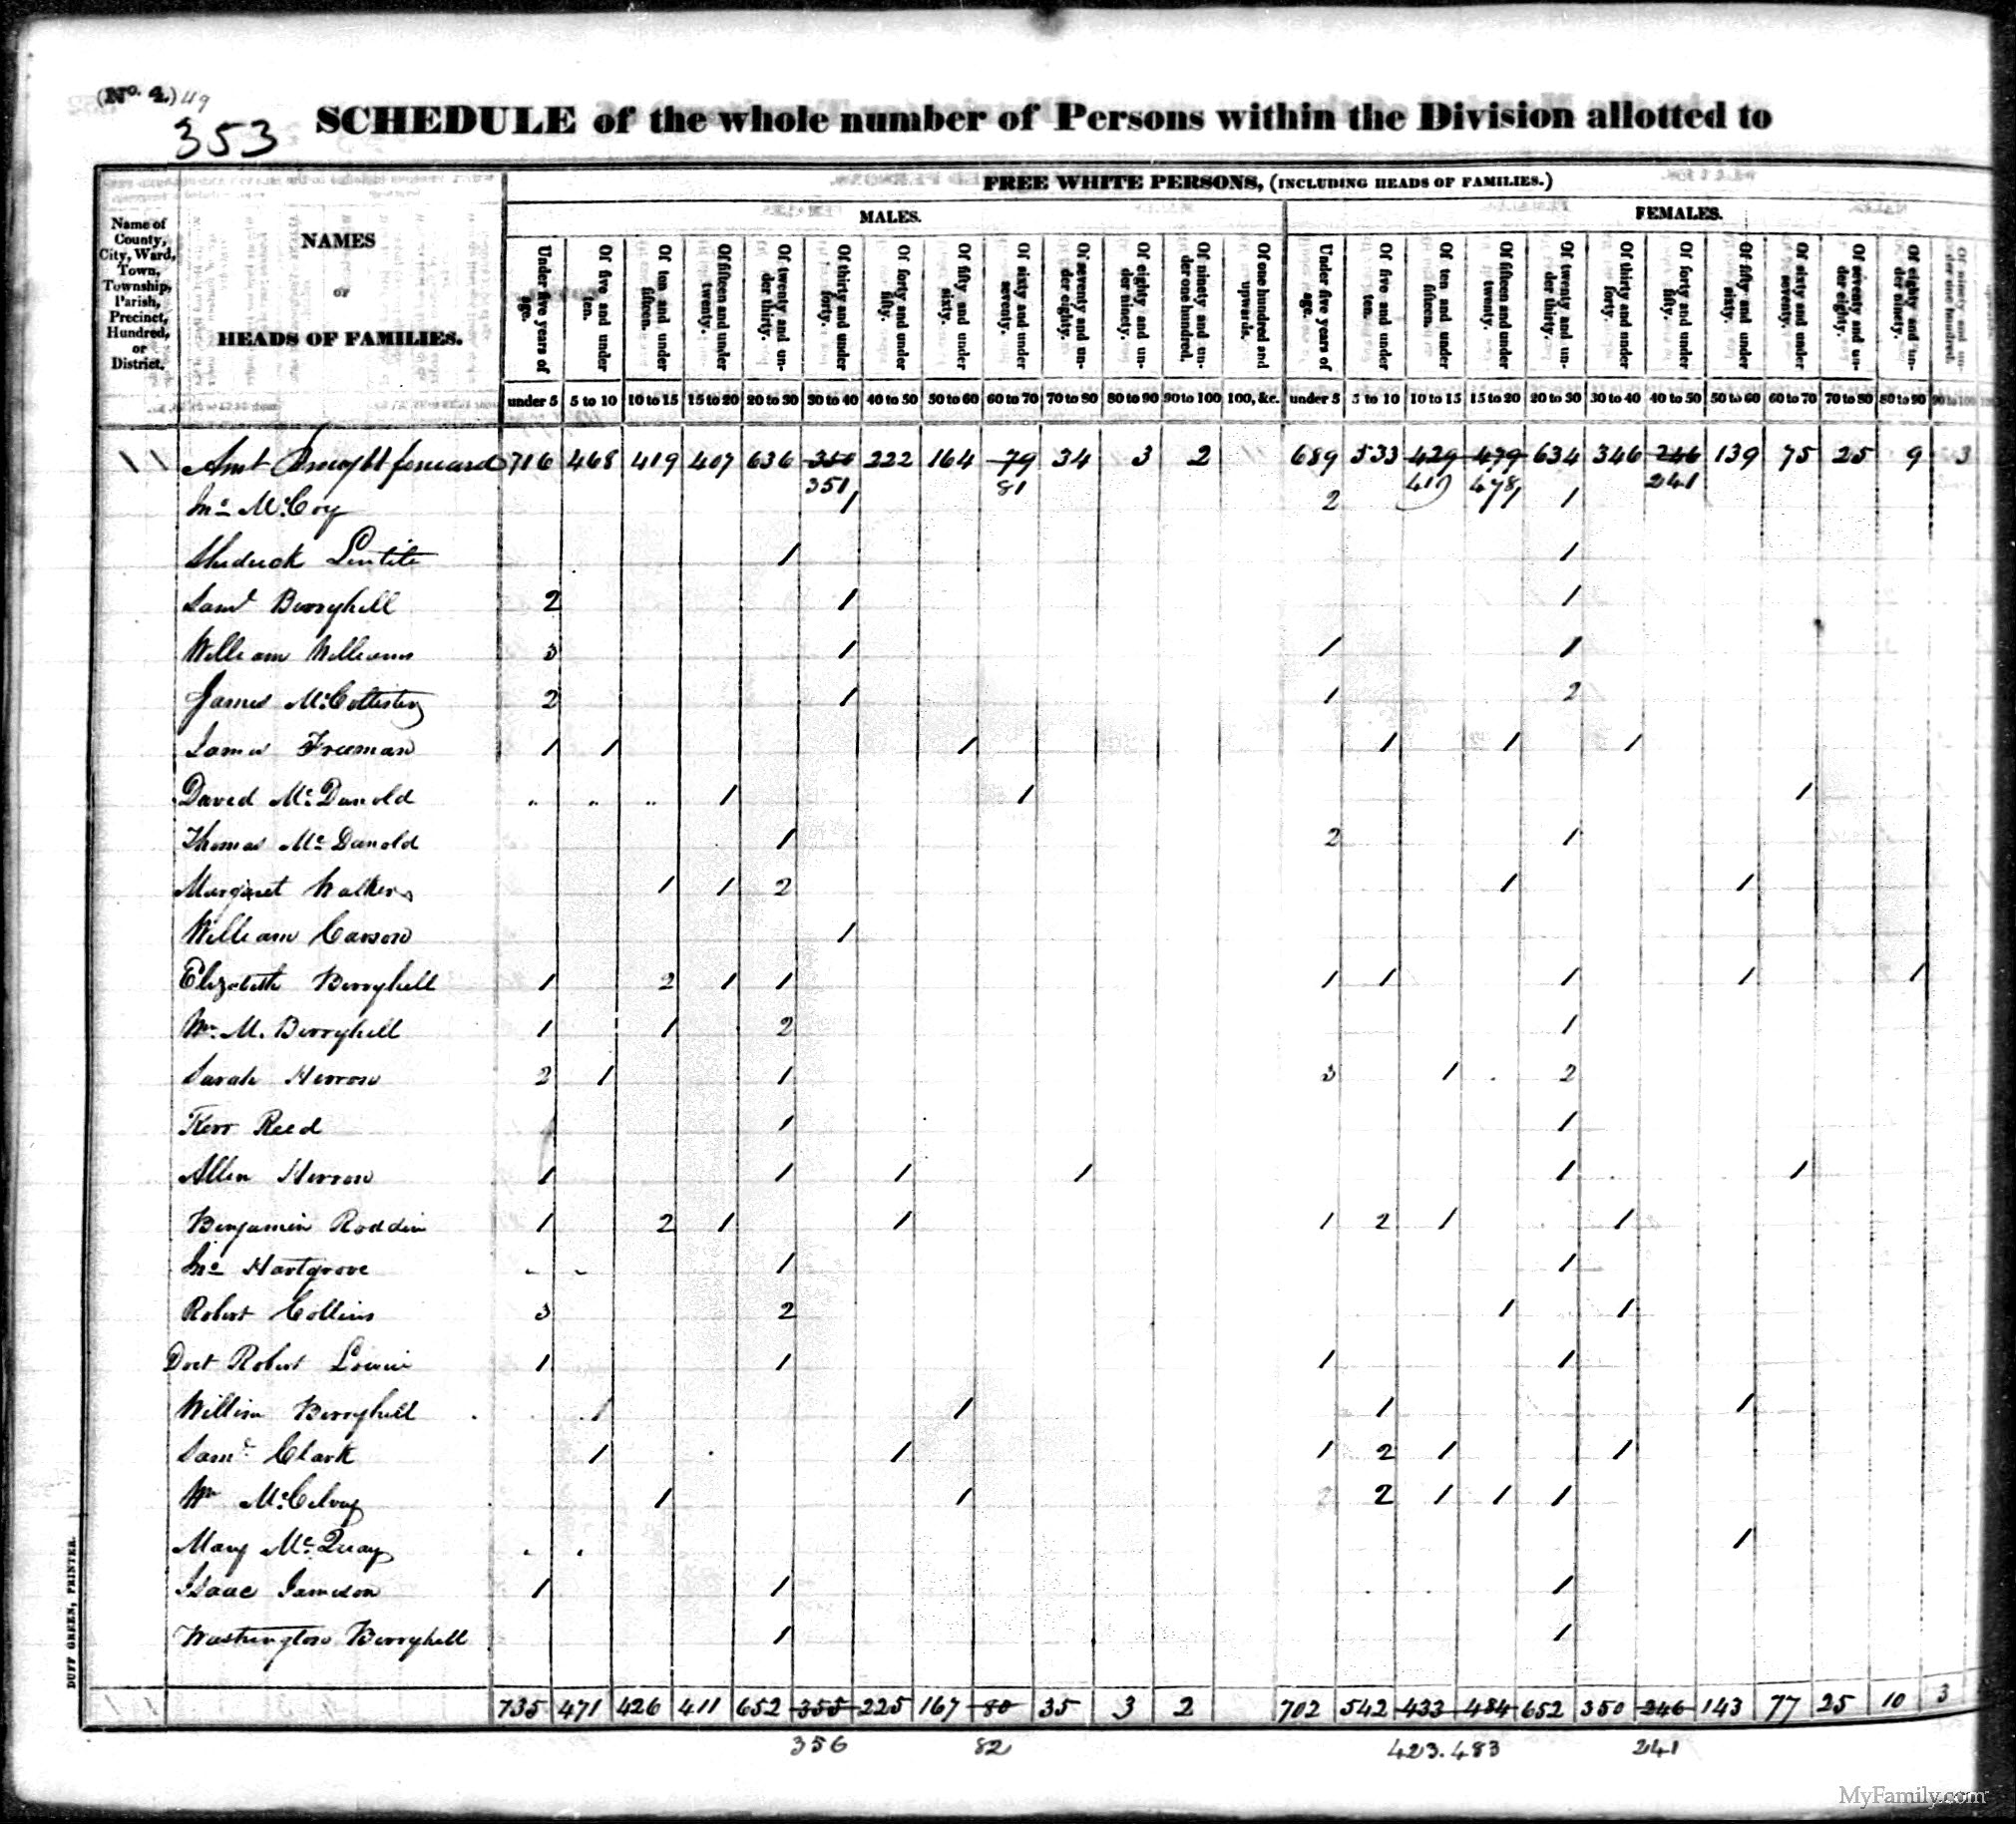 (No. 4.) 119
353
SCHEDULE of the whole number of Persons within the Division allotted to
FREE WHITE PERSONS, (INCLUDING HEADS OF FAMILIES.)
MALES. FEMALES.
Name of County, City, Ward, Town, Township, Parish, Precinct, Hundred, or District.
NAMES OF HEADS OF FAMILIES.
Under five years of age. Of five and under ten. Of ten and under fifteen. Of fifteen and under twenty. Of twenty and under thirty. Of thirty and under forty. Of forty and under fifty. Of fifty and under sixty. Of sixty and under seventy. Of seventy and under eighty. Of eighty and under ninety. Of ninety and under one hundred. Of one hundred and upwards. Under five years of age. Of five and under ten. Of ten and under fifteen. Of fifteen and under twenty. Of twenty and under thirty. Of thirty and under forty. Of forty and under fifty. Of fifty and under sixty. Of sixty and under seventy. Of seventy and under eighty. Of eighty and under ninety. Of ninety and under one hundred.
under 5 5 to 10 10 to 15 15 to 20 20 to 30 30 to 40 40 to 50 50 to 60 60 to 70 70 to 80 80 to 90 90 to 100 100, &c. under 5 5 to 10 10 to 15 15 to 20 20 to 30 30 to 40 40 to 50 50 to 60 60 to 70 70 to 80 80 to 90 90 to 100
Amt Brought forward 716 468 419 407 636 350 222 164 79 34 3 2 689 533 429 479 634 346 246 139 75 25 9 3
351 81 419 478 241
Jno McCoy 1 2 1
Lentile 1 1
Saml Berryhill 2 1 1
William Williams 3 1 1 1
James McCollister 2 1 1 2
James Freeman 1 1 1 1 1 1
David McDanold 1 1 1
Thomas McDanold 1 2 1
Margaret Walker 1 1 2 1 1
William Carson 1
Elizabeth Berryhill 1 2 1 1 1 1 1 1 1
Wm. M. Berryhill 1 1 2 1
Sarah Herron 2 1 1 3 1 2
Kerr Reed 1 1
Allen Herron 1 1 1 1 1 1
Benjamin Roddin 1 2 1 1 1 2 1 1
Jno Hartgrove 1 1
Robert Collins 3 2 1 1
Doct Robert 1 1 1 1
William Berryhill 1 1 1 1
Saml Clark 1 1 1 2 1 1
Wm McCelvey 1 1 2 1 1 1
Mary McQuay 1
Isaac Jameson 1 1 1
Washington Berryhill 1 1
735 471 426 411 652 355 225 167 80 35 3 2 702 542 433 484 652 350 246 143 77 25 10 3
356 82 423. 483 241
DUFF GREEN, PRINTER.
MyFamily.com